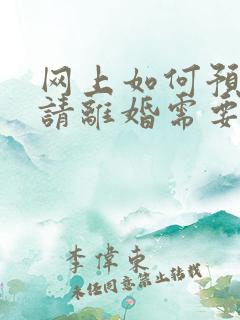 网上如何預
請離婚需要
李偉東
未经同意禁止转载